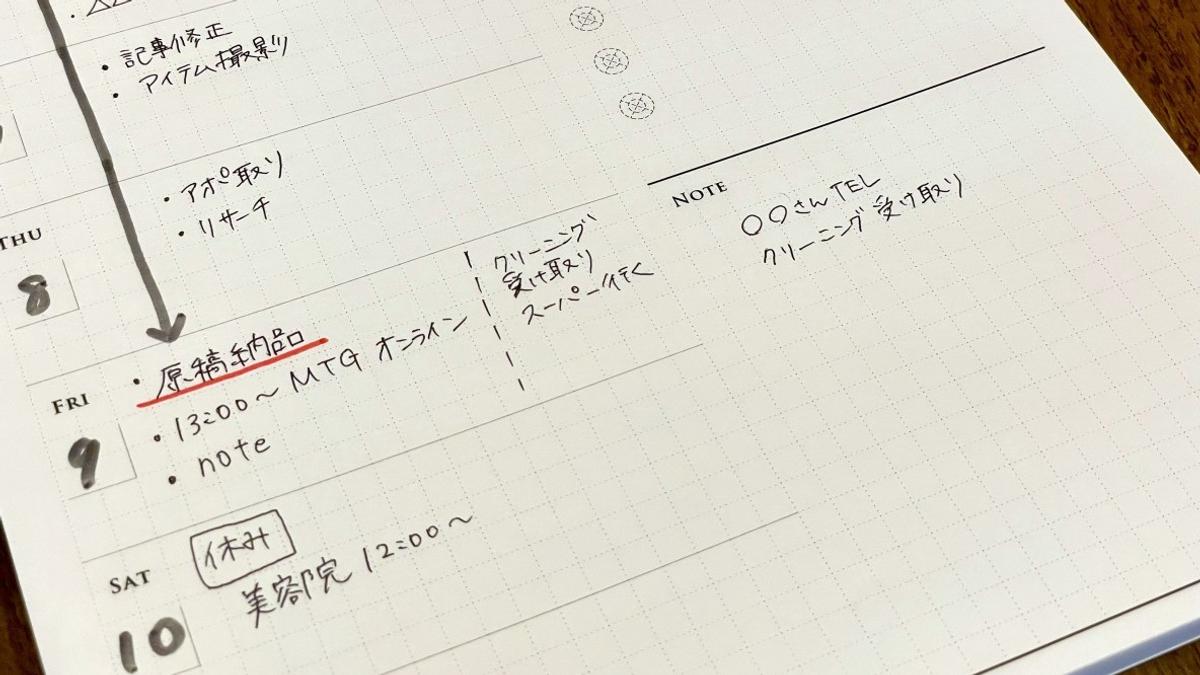 ・記事修正
・アイテム撮影
THU
8
・アポ取り
・リサーチ
FRI
9
・原稿納品
・13:00〜MTG オンライン
・note
クリーニング
受け取り
スーパー行く
SAT
10
休み
美容院 12:00〜
NOTE
〇〇さんTEL
クリーニング受け取り